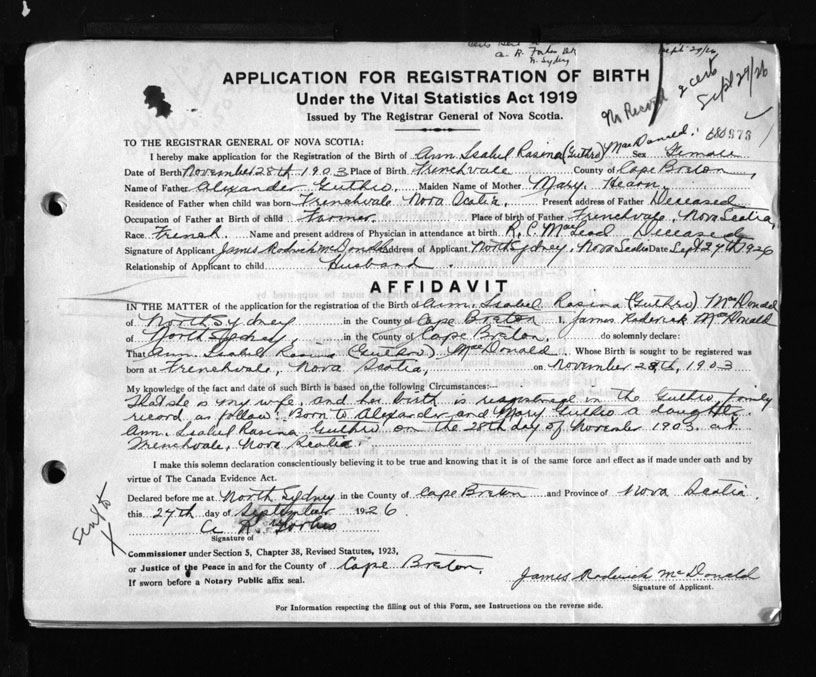 A. R. Forbes
N. Sydney
Sept 29/26
APPLICATION FOR REGISTRATION OF BIRTH
Under the Vital Statistics Act 1919
Issued by The Registrar General of Nova Scotia.
No Record 2 certs Sept 29/26
TO THE REGISTRAR GENERAL OF NOVA SCOTIA:
I hereby make application for the Registration of the Birth of Ann Isabel Rasina (Guthro) MacDonald. Sex Female
Date of Birth November 28th 1903 Place of Birth Frenchvale County of Cape Breton,
Name of Father Alexander Guthro. Maiden Name of Mother Mary. Hearn.
Residence of Father when child was born Frenchvale Nova Scotia. Present address of Father Deceased
Occupation of Father at Birth of child Farmer. Place of birth of Father Frenchvale, Nova Scotia,
Race French. Name and present address of Physician in attendance at birth R. C. MacLeod Deceased
Signature of Applicant James Rodrick McDonald Address of Applicant North Sydney, Nova Scotia Date Sept 27th 1926
Relationship of Applicant to child Husband.
AFFIDAVIT
IN THE MATTER of the application for the registration of the Birth of Ann. Isabel Rasina (Guthro) McDonald
of North Sydney in the County of Cape Breton I, James Roderick McDonald
of North Sydney, in the County of Cape Breton, do solemnly declare:
That Ann Isabel Rasina (Guthro) MacDonald Whose Birth is sought to be registered was
born at Frenchvale, Nova Scotia, on November 28th, 1903
My knowledge of the fact and date of such Birth is based on the following Circumstances:—
That she is my wife, and her birth is in the Guthro family
record as follow: Born to Alexander and Mary Guthro a daughter
Ann. Isabel Rasina Guthro on the 28th day of November 1903. at
Frenchvale, Nova Scotia.
I make this solemn declaration conscientiously believing it to be true and knowing that it is of the same force and effect as if made under oath and by
virtue of The Canada Evidence Act.
Declared before me at North Sydney in the County of Cape Breton and Province of Nova Scotia.
this 27th day of September 1926.
A. R. Forbes
Signature of
Commissioner under Section 5, Chapter 38, Revised Statutes, 1923,
or Justice of the Peace in and for the County of Cape Breton.
If sworn before a Notary Public affix seal.
James Roderick McDonald
Signature of Applicant.
For Information respecting the filling out of this Form, see Instructions on the reverse side.